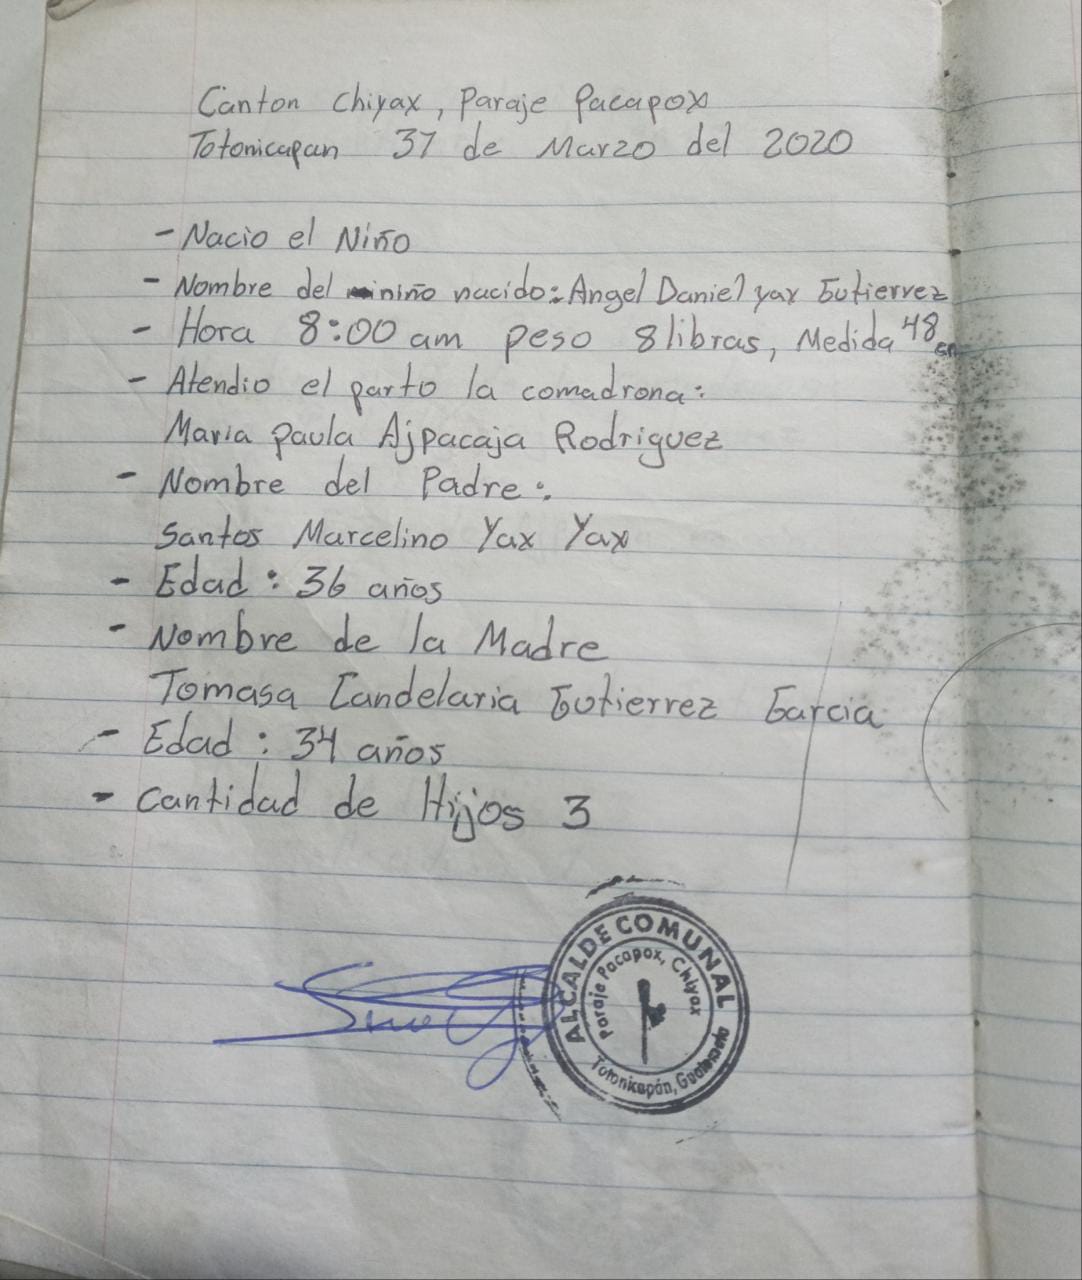 Canton Chiyax, Paraje Pacapox
Totonicapan 31 de Marzo del 2020
- Nacio el Niño
- Nombre del niño nacido: Angel Daniel yax Gutierrez
- Hora 8:00 am peso 8 libras, Medida 48 cm
- Atendio el parto la comadrona:
Maria paula Ajpacaja Rodriguez
- Nombre del Padre:
Santos Marcelino Yax Yax
- Edad: 36 años
- Nombre de la Madre
Tomasa Candelaria Gutierrez Garcia
- Edad: 34 años
- Cantidad de Hijos 3
ALCALDE COMUNAL
Paraje Pacapox, Chiyax
Totonicapán, Guatemala